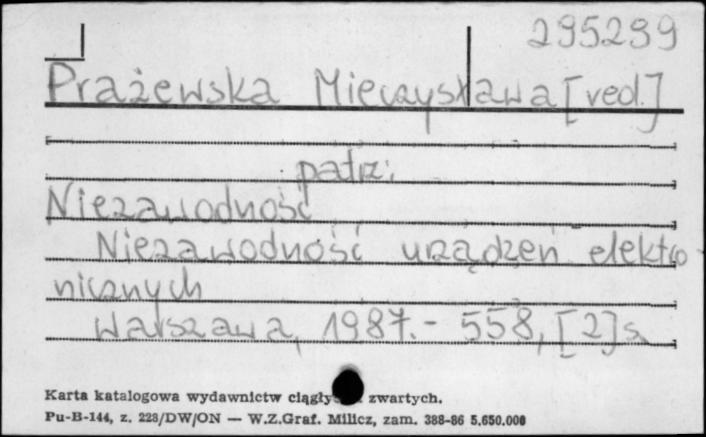 295299
Prażewska Mieczysława [red.]
patrz:
Niezawodność
Niezawodność urządzeń elektro
nicznych
Warszawa, 1987. - 558, [2] s.
Karta katalogowa wydawnictw ciągły zwartych.
Pu-B-144, z. 228/DW/ON — W.Z.Graf. Milicz, zam. 388-86 5.650.000